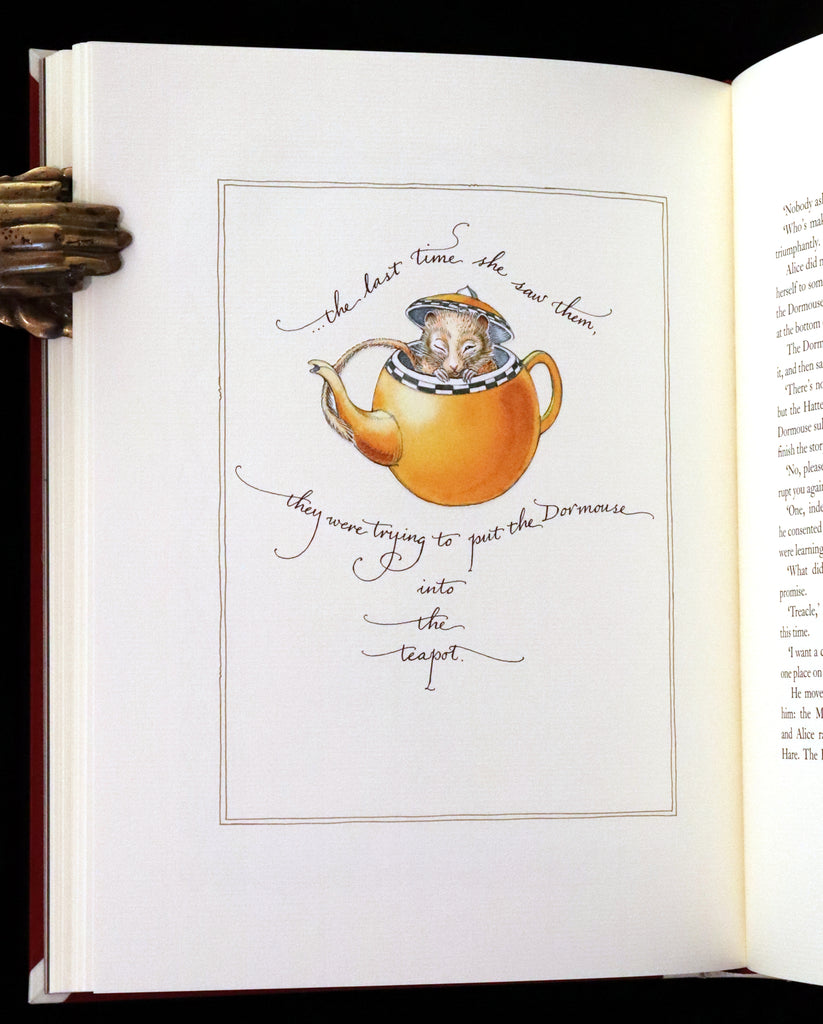 ...the last time she saw them,
they were trying to put the Dormouse
into
the
teapot.
'Nobody
'Who's
triumphantly.
Alice did
herself to
the Dormouse
at the bottom
The
it, and then
'There's
but the
Dormouse
finish the
'No,
rupt you
'One,
he consented
were learning
'What
promise.
'Treacle,'
this time.
'I want a
one place on
He
him: the
and Alice
Hare. The